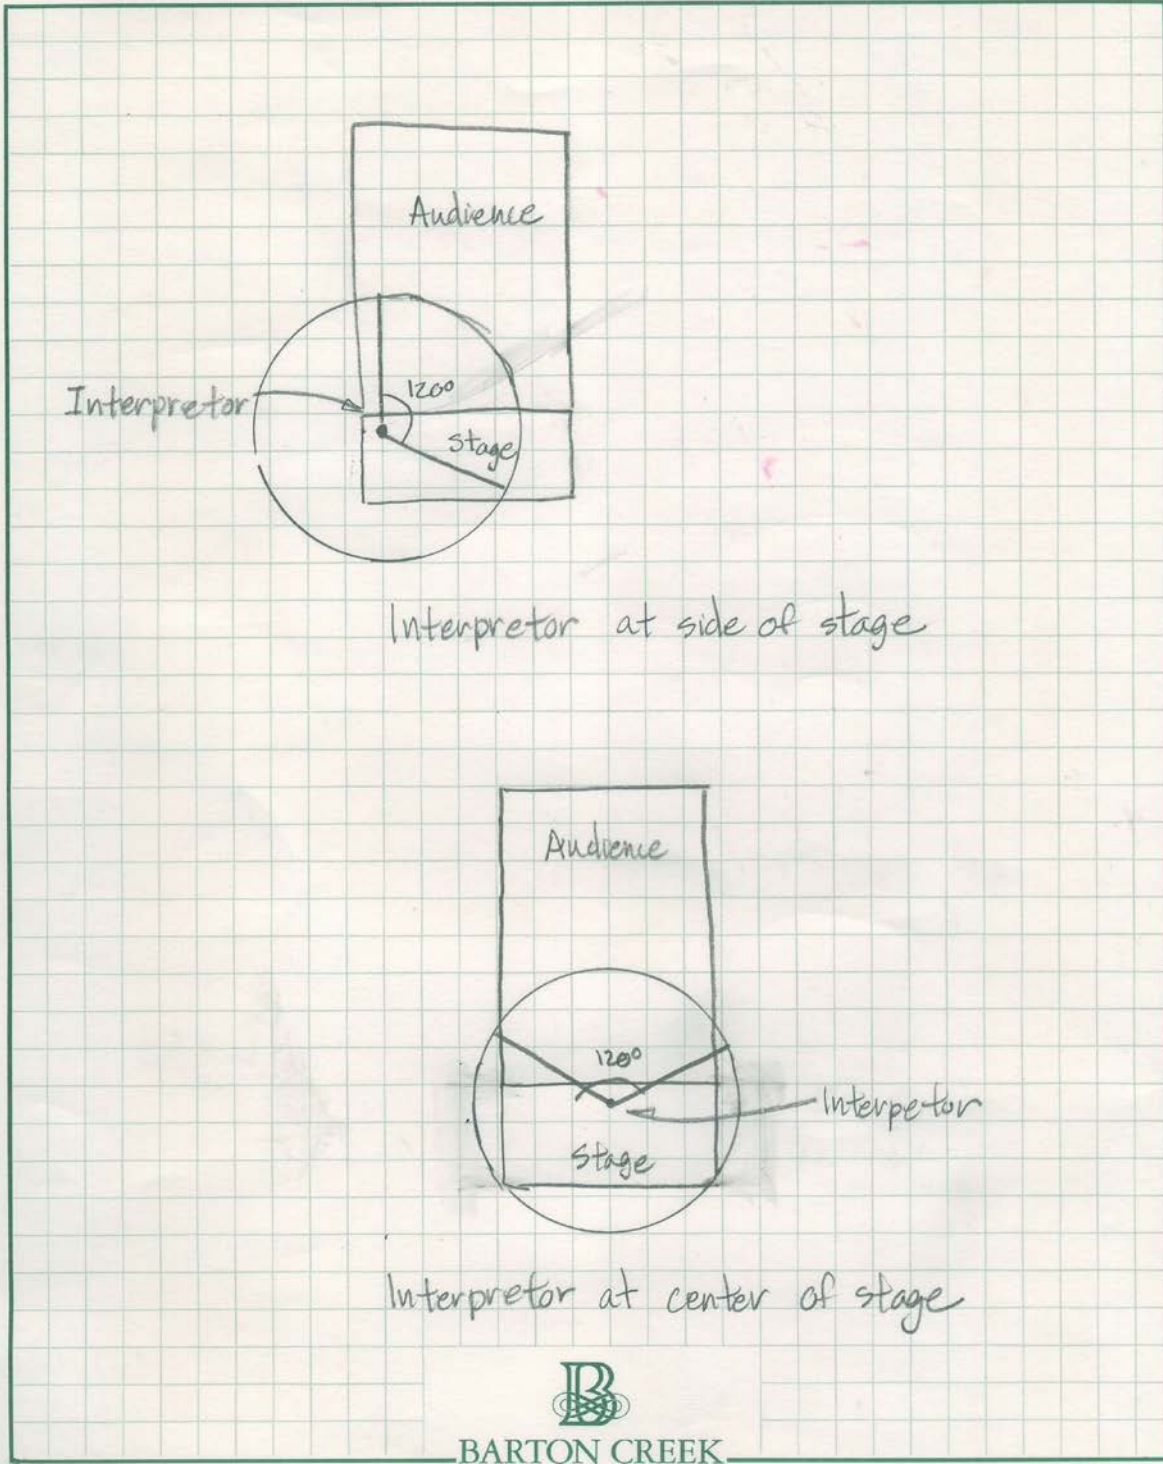 Audience
120°
Interpretor
Stage
Interpretor at side of stage
Audience
120°
Interpetor
Stage
Interpretor at center of stage
B
BARTON CREEK